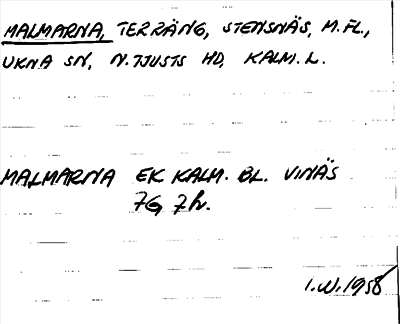 MALMARNA, TERRÄNG, STENSNÄS, M.FL.,
UKNA SN, N. TJUSTS HD, KALM. L.
MALMARNA EK KALM. BL. VINÄS
7G 7h.
I.W. 1958